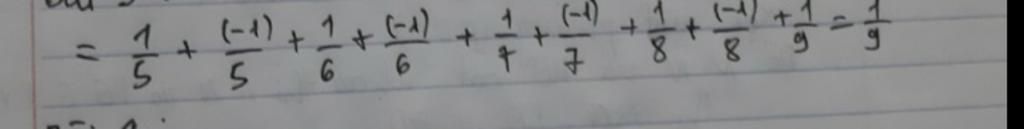 = 1/5 + (-1)/5 + 1/6 + (-1)/6 + 1/7 + (-1)/7 + 1/8 + (-1)/8 + 1/9 = 1/9